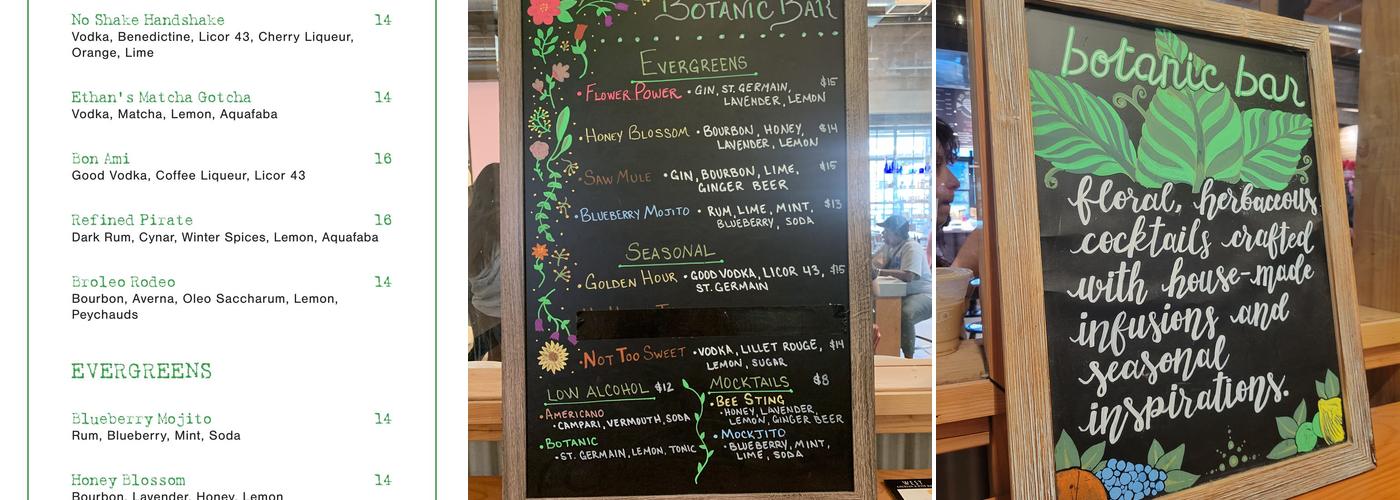 No Shake Handshake 14
Vodka, Benedictine, Licor 43, Cherry Liqueur,
Orange, Lime
Ethan's Matcha Gotcha 14
Vodka, Matcha, Lemon, Aquafaba
Bon Ami 16
Good Vodka, Coffee Liqueur, Licor 43
Refined Pirate 16
Dark Rum, Cynar, Winter Spices, Lemon, Aquafaba
Broleo Rodeo 14
Bourbon, Averna, Oleo Saccharum, Lemon,
Peychauds
EVERGREENS
Blueberry Mojito 14
Rum, Blueberry, Mint, Soda
Honey Blossom 14
Bourbon, Lavender, Honey, Lemon
BOTANIC BAR
EVERGREENS
• FLOWER POWER • GIN, ST. GERMAIN, $15
LAVENDER, LEMON
• HONEY BLOSSOM • BOURBON, HONEY, $14
LAVENDER, LEMON
• SAW MULE • GIN, BOURBON, LIME, $15
GINGER BEER
• BLUEBERRY MOJITO • RUM, LIME, MINT, $13
BLUEBERRY, SODA
SEASONAL
• GOLDEN HOUR • GOOD VODKA, LICOR 43, $15
ST. GERMAIN
• NOT TOO SWEET • VODKA, LILLET ROUGE, $14
LEMON, SUGAR
LOW ALCOHOL $12
• AMERICANO
• CAMPARI, VERMOUTH, SODA
• BOTANIC
• ST. GERMAIN, LEMON, TONIC
MOCKTAILS $8
• BEE STING
• HONEY, LAVENDER,
LEMON, GINGER BEER
• MOCKJITO
• BLUEBERRY, MINT,
LIME, SODA
botanic bar
floral, herbaceous
cocktails crafted
with house-made
infusions and
seasonal
inspirations.